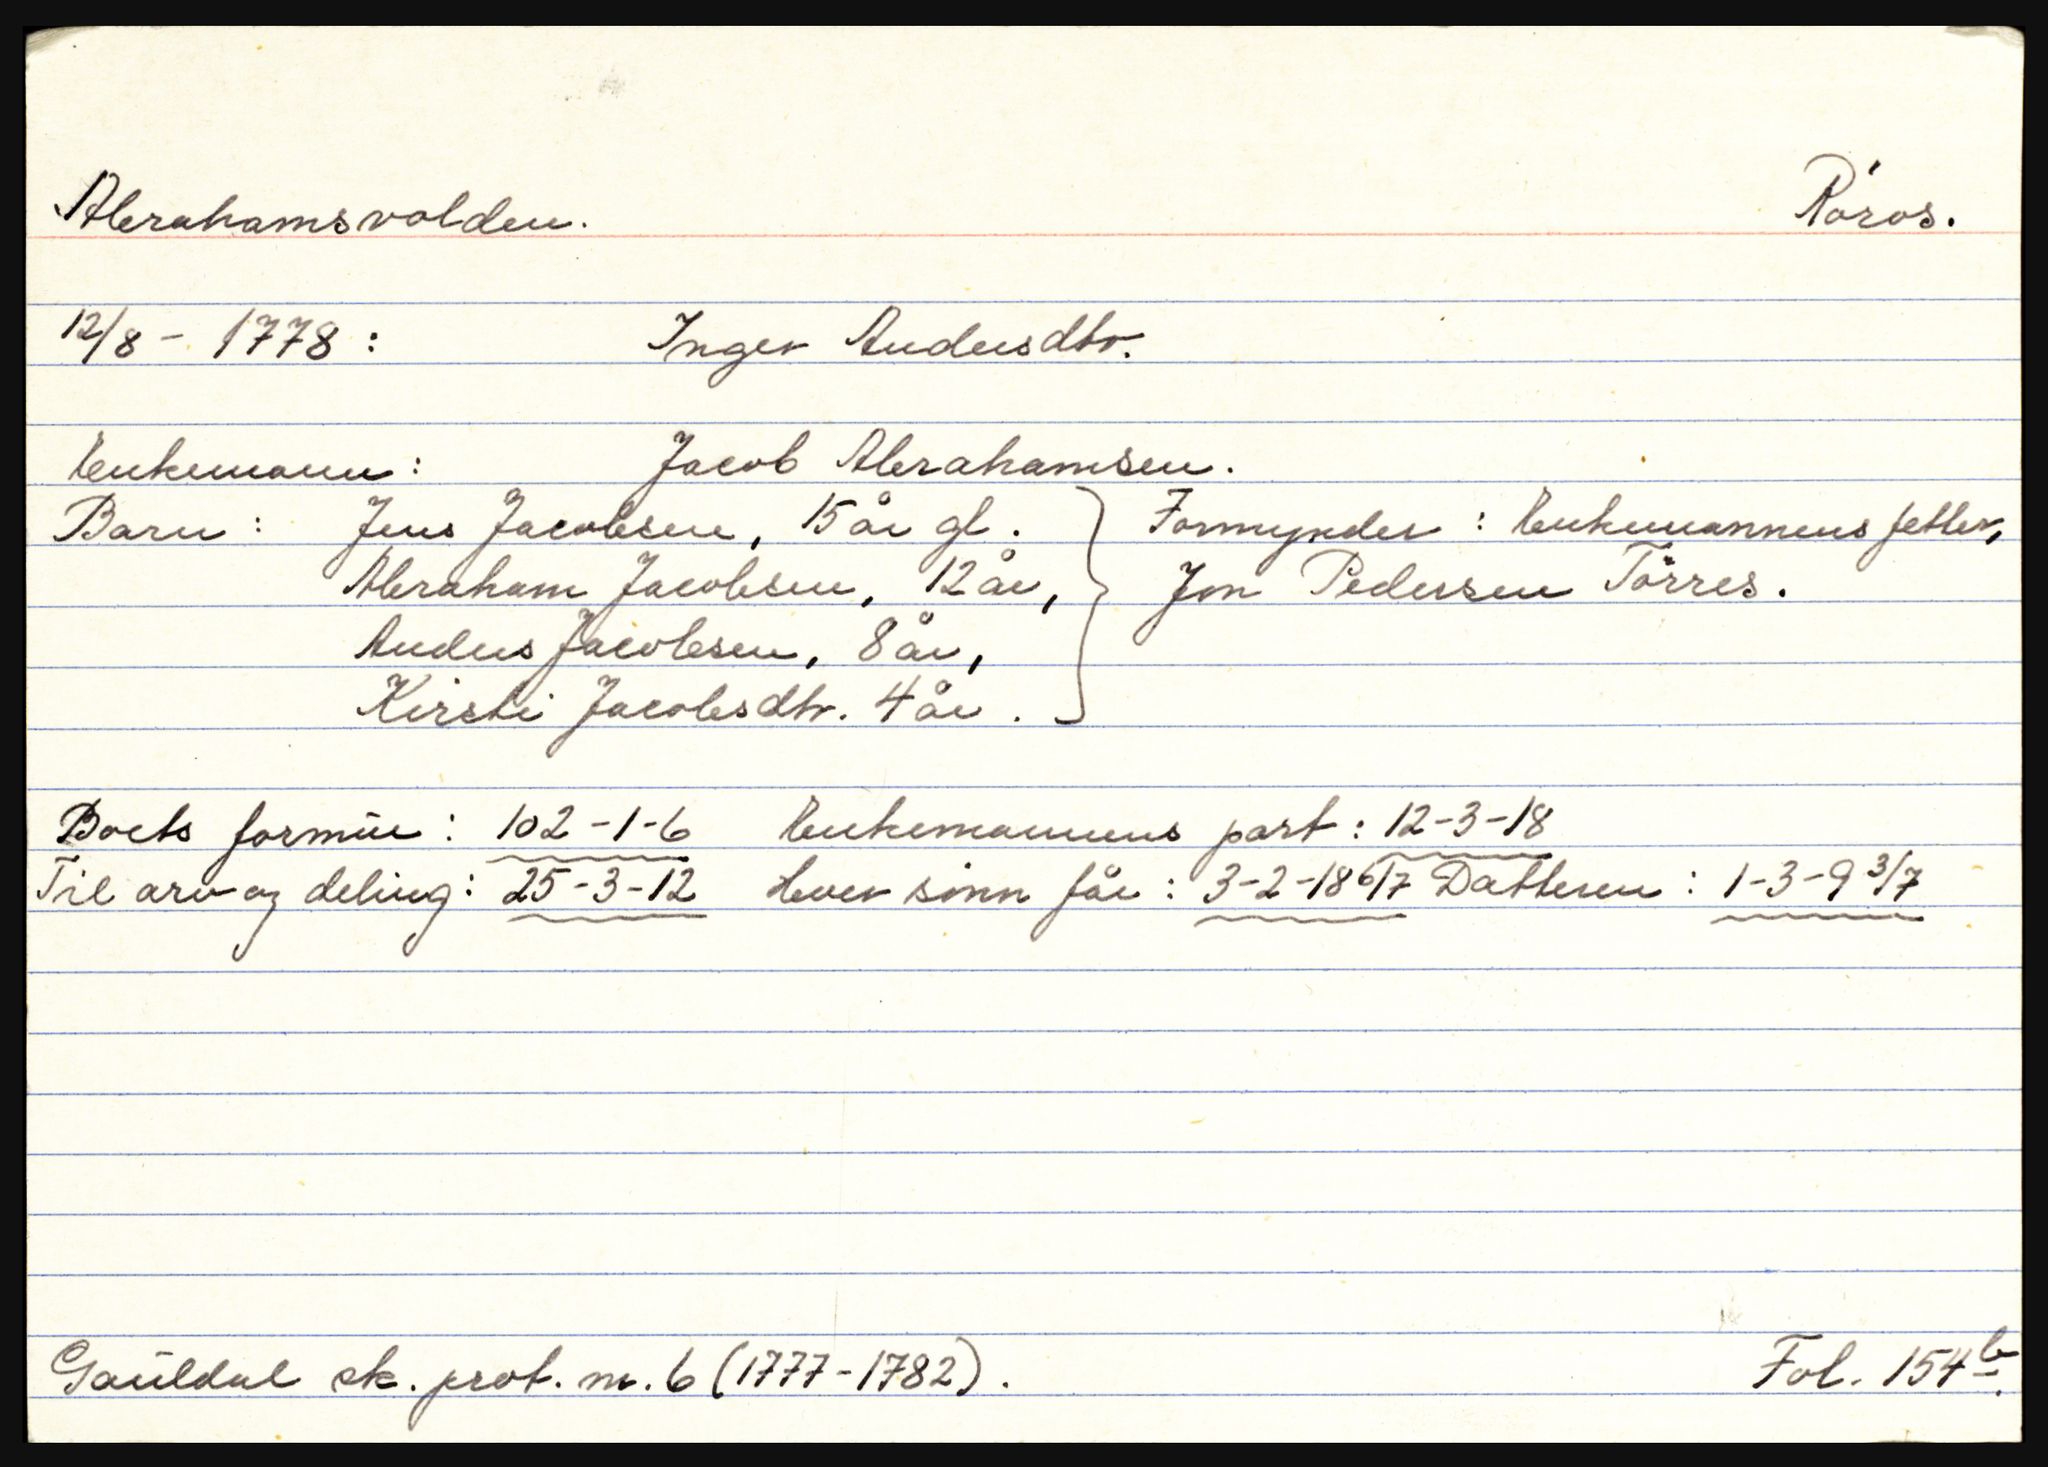 Abrahamsvolden. Röros.
12/8 - 1778 : Inger Andersdtr.
Enkemann : Jacob Abrahamsen.
Barn : Jens Jacobsen, 15 år gl. Formynder : Enkemannens fetter,
Abraham Jacobsen, 12 år, Jon Pedersen Törres.
Anders Jacobsen, 8 år,
Kirsti Jacobsdtr. 4 år.
Boets formue : 102-1-6 Enkemannens part : 12-3-18
Til arv og deling : 25-3-12 Hver sönn får : 3-2-18 6/7 Datteren : 1-3-9 3/7
Gauldal sk. prot. nr. 6 (1777-1782). Fol. 154 b.